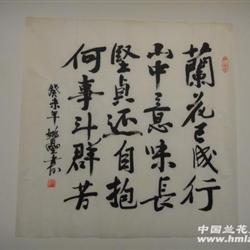 蘭花已成行
山中意味長
堅貞还自抱
何事斗群芳
癸未年
中国兰花
www.hmla